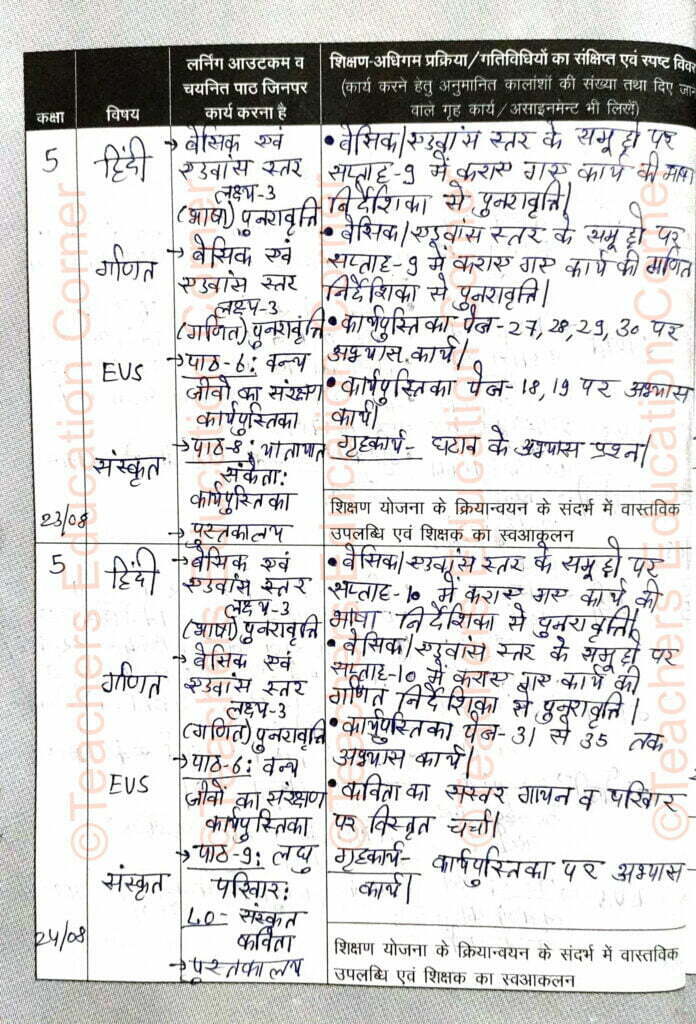 कक्षा
विषय
लर्निंग आउटकम व
चयनित पाठ जिनपर
कार्य करना है
शिक्षण-अधिगम प्रक्रिया/गतिविधियों का संक्षिप्त एवं स्पष्ट विवर
(कार्य करने हेतु अनुमानित कालांशों की संख्या तथा दिए जान
वाले गृह कार्य/असाइनमेन्ट भी लिखें)
5
हिंदी
→ वेसिक एवं
एडवांस स्तर
लक्ष्य-3
(भाषा) पुनरावृत्ति
• वेसिक/एडवांस स्तर के समूहों पर
सप्ताह-9 में कराए गए कार्य की भाषा
निर्देशिका से पुनरावृत्ति।
गणित
→ वेसिक एवं
एडवांस स्तर
लक्ष्य-3
(गणित) पुनरावृत्ति
• वेसिक/एडवांस स्तर के समूहों पर
सप्ताह-9 में कराए गए कार्य की गणित
निर्देशिका से पुनरावृत्ति।
EVS
→ पाठ-6: वन्य
जीवों का संरक्षण
कार्यपुस्तिका
• कार्यपुस्तिका पेज-27,28,29,30 पर
अभ्यास कार्य।
संस्कृत
→ पाठ-8: यातायात
संकेता:
कार्यपुस्तिका
→ पुस्तकालय
• कार्यपुस्तिका पेज-18,19 पर अभ्यास
कार्य।
गृहकार्य- घटाव के अभ्यास प्रश्न।
23/08
शिक्षण योजना के क्रियान्वयन के संदर्भ में वास्तविक
उपलब्धि एवं शिक्षक का स्वआकलन
5
हिंदी
→ वेसिक एवं
एडवांस स्तर
लक्ष्य-3
(भाषा) पुनरावृत्ति
• वेसिक/एडवांस स्तर के समूहों पर
सप्ताह-10 में कराए गए कार्य की
भाषा निर्देशिका से पुनरावृत्ति।
गणित
→ वेसिक एवं
एडवांस स्तर
लक्ष्य-3
(गणित) पुनरावृत्ति
• वेसिक/एडवांस स्तर के समूहों पर
सप्ताह-10 में कराए गए कार्य की
गणित निर्देशिका से पुनरावृत्ति।
EVS
→ पाठ-6: वन्य
जीवों का संरक्षण
कार्यपुस्तिका
• कार्यपुस्तिका पेज-31 से 35 तक
अभ्यास कार्य।
संस्कृत
→ पाठ-9: लघु
परिवार:
L.O- संस्कृत
कविता
→ पुस्तकालय
• कविता का सस्वर गायन व परिवार
पर विस्तृत चर्चा।
गृहकार्य- कार्यपुस्तिका पर अभ्यास
कार्य।
24/08
शिक्षण योजना के क्रियान्वयन के संदर्भ में वास्तविक
उपलब्धि एवं शिक्षक का स्वआकलन
©Teachers Education Corner
©Teachers Education Corner
©Teachers Education Corner